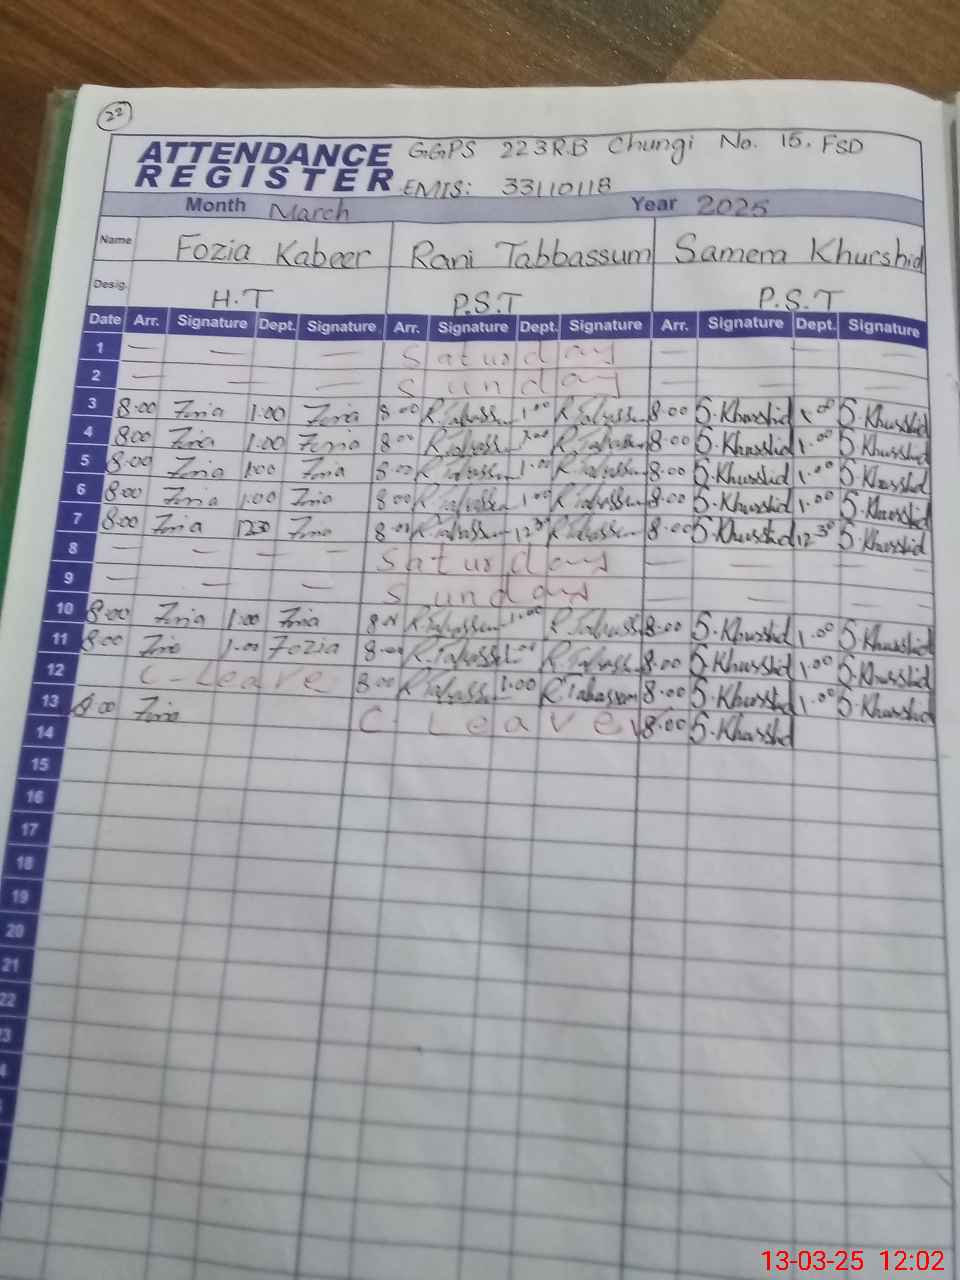 22
ATTENDANCE REGISTER GGPS 223R.B Chungi No. 15. FSD
EMIS: 33110118
Month March Year 2025
Name Fozia Kabeer Rani Tabbassum Samera Khurshid
Desig. H.T P.S.T P.S.T
Date Arr. Signature Dept. Signature Arr. Signature Dept. Signature Arr. Signature Dept. Signature
1 — — — Saturday — — — —
2 — — — Sunday — — — —
3 8.00 1.00 8.00 R.Tabassum 1.00 R.Tabassum 8.00 S.Khurshid 1.00 S.Khurshid
4 8.00 1.00 8.00 R.Tabassum 1.00 R.Tabassum 8.00 S.Khurshid 1.00 S.Khurshid
5 8.00 1.00 8.00 R.Tabassum 1.00 R.Tabassum 8.00 S.Khurshid 1.00 S.Khurshid
6 8.00 1.00 8.00 R.Tabassum 1.00 R.Tabassum 8.00 S.Khurshid 1.00 S.Khurshid
7 8.00 1230 8.00 R.Tabassum 12.30 R.Tabassum 8.00 S.Khurshid 12.30 S.Khurshid
8 — — — — Saturday — — — —
9 — — — Sunday — — — —
10 8.00 1.00 8.00 R.Tabassum 1.00 R.Tabassum 8.00 S.Khurshid 1.00 S.Khurshid
11 8.00 1.00 Fozia 8.00 R.Tabassum 1.00 R.Tabassum 8.00 S.Khurshid 1.00 S.Khurshid
12 C-Leave 8.00 R.Tabassum 1.00 R.Tabassum 8.00 S.Khurshid 1.00 S.Khurshid
13 8.00 C Leave 8.00 S.Khurshid
14
15
16
17
18
19
20
21
22
13-03-25 12:02